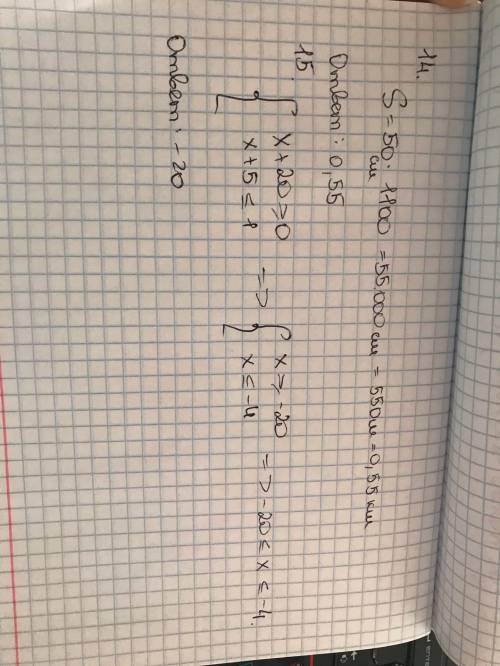 14.
S = 50 см · 1100 = 55.000 см = 550 м = 0,55 км
Ответ: 0,55
15.
{ x+20 ≥ 0 => { x ≥ -20 => -20 ≤ x ≤ -4.
x+5 ≤ 1 x ≤ -4
Ответ: -20